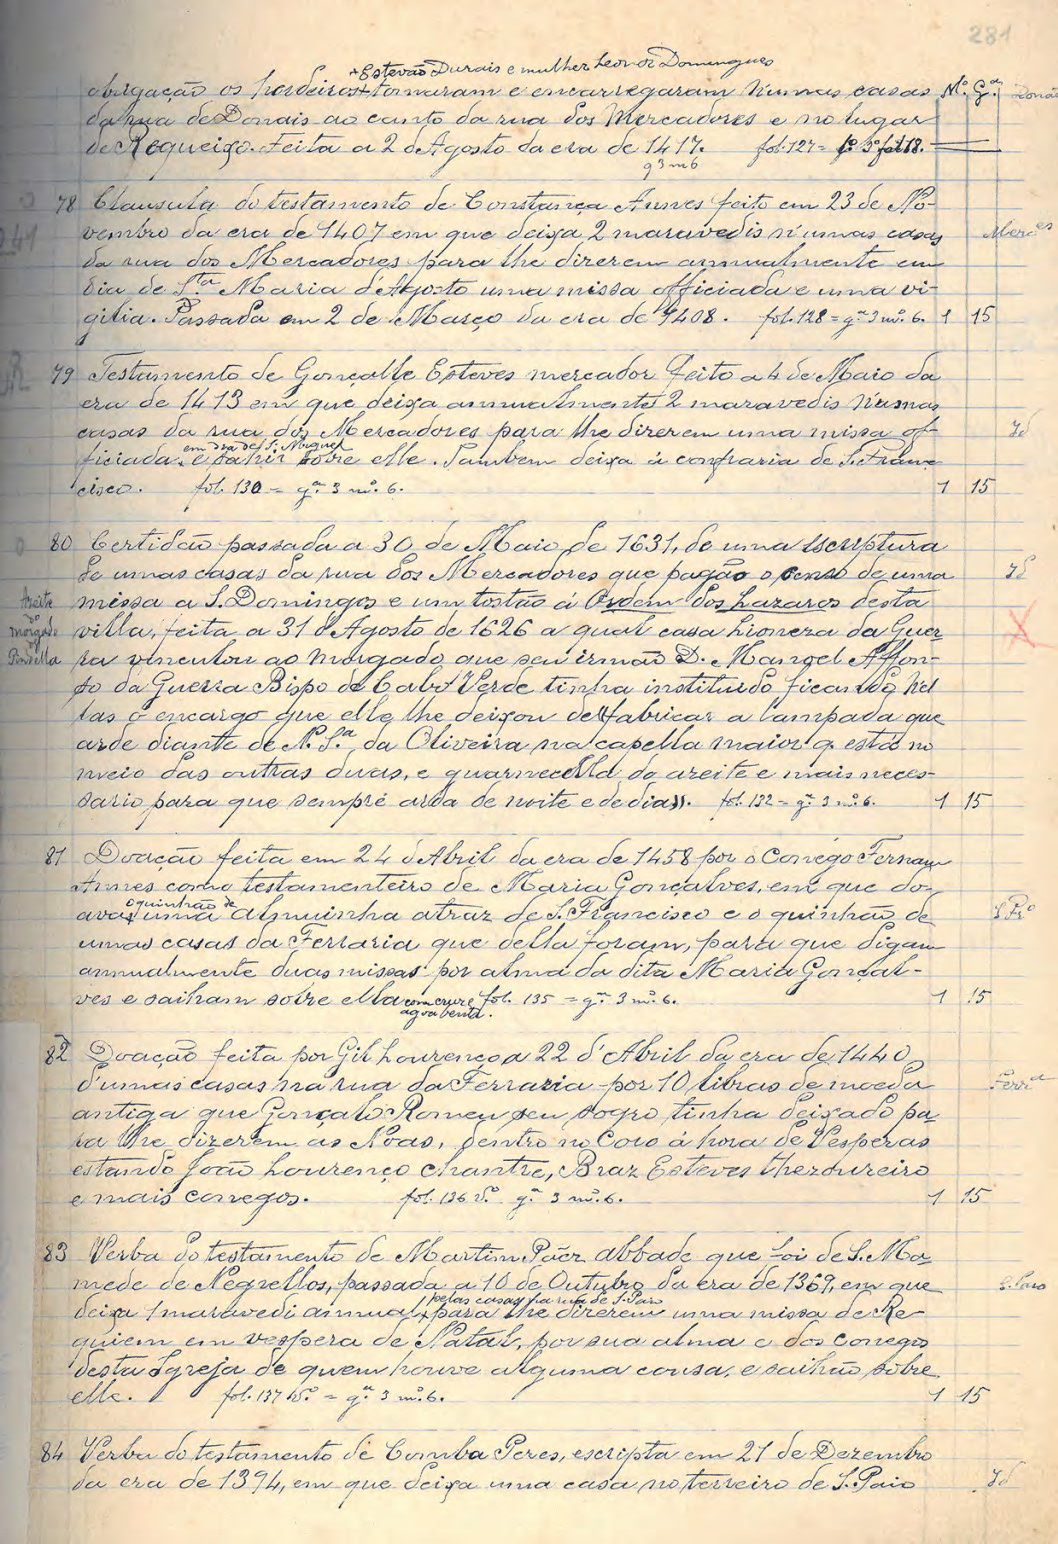 281
+ Estevão Durais e mulher Leonor Domingues
obrigação os herdeiros + tomaram e encarregaram n'umas casas Nº. G.ª
da rua de Donais ao canto da rua dos Mercadores e no lugar
de Requeixo. Feita a 2 d'Agosto da era de 1417. fol. 127 =
gª 3 nº 6
78 Clausula do testamento de Constança Annes feito em 23 de No-
vembro da era de 1407 em que deixa 2 maravedis n'umas casas
da rua dos Mercadores para lhe dizerem annualmente em
dia de S.ta Maria d'Agosto uma missa officiada e uma vi-
gilia. Passada em 2 de Março da era de 1408. fol. 128 = g.ª 3 nº. 6. 1 15
79 Testamento de Gonçalle Esteves mercador feito a 4 de Maio da
era de 1413 em que deixa annualmente 2 maravedis n'umas
casas da rua dos Mercadores para lhe dizerem uma missa of- Id
em dia de S. Miguel
ficiada e sahir sobre elle. Tambem deixa á confraria de S. Fran-
cisco. fol. 130 = g.ª 3 nº. 6. 1 15
80 Certidão passada a 30 de Maio de 1631, de uma escriptura
de umas casas da rua dos Mercadores que pagão o censo de uma Id
missa a S. Domingos e um tostão á Ordem dos Lazaros desta
villa, feita a 31 d'Agosto de 1626 a qual casa Lionera da Guer-
ra vinculou ao morgado que seu irmão D. Manoel Affon-
so da Guerra Bispo de Cabo Verde tinha instituido ficando nel-
las o encargo que elle lhe deixou de fabricar a lampada que
arde diante de N. S.ª da Oliveira na capella maior q. está no
meio das outras duas, e guarnecella do azeite e mais neces-
sario para que sempre arda de noite e de dia. fol. 132 = g.ª 3 nº. 6. 1 15
Azeite
do
morgado
81 Doação feita em 24 d'Abril da era de 1458 por o Conego Fernam
Annes como testamenteiro de Maria Gonçalves, em que do-
o quinhão de
ava uma almuinha atraz de S. Francisco e o quinhão de
umas casas da Ferraria que della foram, para que digam
annualmente duas missas por alma da dita Maria Gonçal-
ves e saiham sobre ella com cruz e fol. 135 = g.ª 3 nº. 6. 1 15
agoa benta.
82 Doação feita por Gil Lourenço a 22 d'Abril da era de 1440
d'umas casas na rua da Ferraria por 10 libras de moeda Ferr.ª
antiga que Gonçalo Romeu seu sogro tinha deixado pa-
ra lhe dizerem as Noas, dentro no Coro á hora de Vesperas
estando João Lourenço chantre, Braz Esteves thezoureiro
e mais conegos. fol. 136 vº. g.ª 3 nº. 6. 1 15
83 Verba do testamento de Martim Páez abbade que foi de S. Ma-
mede de Negrellos, passada a 10 de Outubro da era de 1369, em que S. Paio
pelas casas na rua de S. Paio
deixa 1 maravedi annual + para lhe dizerem uma missa de Re-
quiem em vespera de Natal, por sua alma e dos conegos
desta Igreja de quem houve alguma cousa, e saihão sobre
elle. fol. 137 vº. = g.ª 3 nº. 6. 1 15
84 Verba do testamento de Comba Peres, escripta em 21 de Dezembro
da era de 1394, em que deixa uma casa no terreiro de S. Paio Id